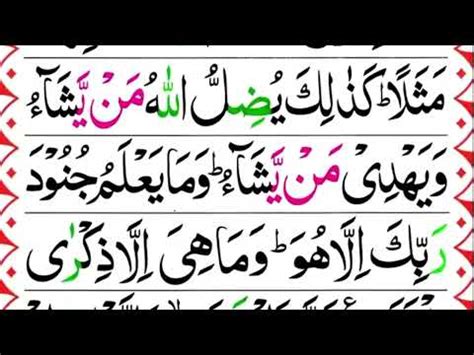 مَثَلًاؕ كَذٰلِكَ يُضِلُّ اللّٰهُ مَنْ يَّشَآءُ
وَيَهْدِىْ مَنْ يَّشَآءُؕ وَمَا يَعْلَمُ جُنُوْدَ
رَبِّكَ اِلَّا هُوَؕ وَمَا هِىَ اِلَّا ذِكْرٰى